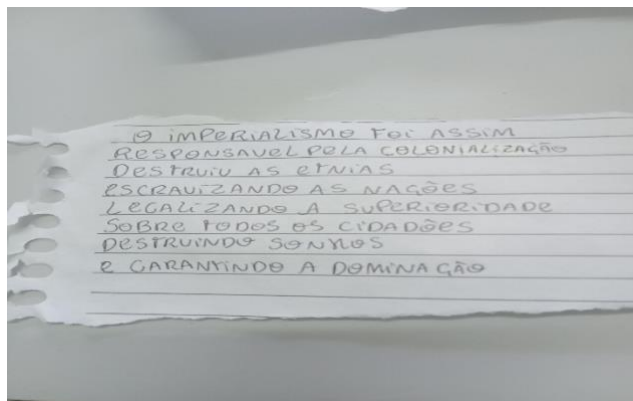 O IMPERIALISMO FOI ASSIM
RESPONSAVEL PELA COLONIALIZAÇÃO
DESTRUIU AS ETNIAS
ESCRAVIZANDO AS NAÇÕES
LEGALIZANDO A SUPERIORIDADE
SOBRE TODOS OS CIDADÕES
DESTRUINDO SONHOS
E GARANTINDO A DOMINAÇÃO